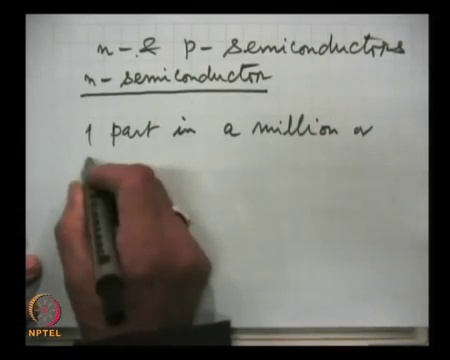 n- & p- semiconductors
n- semiconductor
1 part in a million or
NPTEL